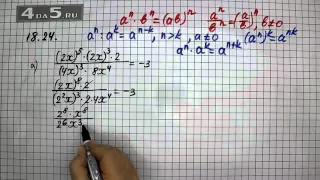 4DA5.RU
aⁿ·bⁿ=(ab)ⁿ aⁿ/bⁿ=(a/b)ⁿ, b≠0
18.24. aⁿ:aᵏ=aⁿ⁻ᵏ, n>k, a≠0 (aⁿ)ᵏ=aⁿᵏ
aⁿ·aᵏ=aⁿ⁺ᵏ
а) (2x)⁵·(2x)³·2 / (4x)³·8x⁴ = -3
(2x)⁸·2 / (2²x)³·2·4x⁴ = -3
2⁸·x⁸
2⁶x³